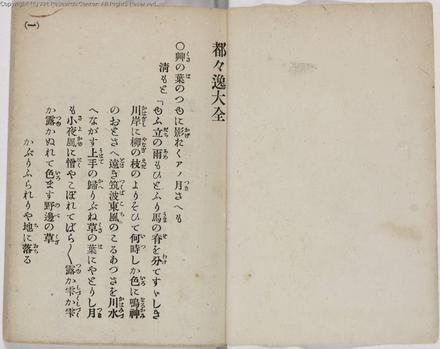 Copyright (C) Art Research Center. All Rights Reserved.
都々逸大全
〇艸の葉のつゆに影れくアノ月さへも
清もと「ゆふ立の雨もひとふり馬の脊を分てすゞしき
川岸に柳の枝のよりそひて何時しか色に鳴神
のおとさへ遠き筑波東風のこるあつさを川水
へながす上手の歸りぶね草の葉にやどりし月
も小夜風に憎やこぼれてばら〱露か雫か雫
か露かぬれて色ます野邊の草
かぶりふられりや地に落る
(一)